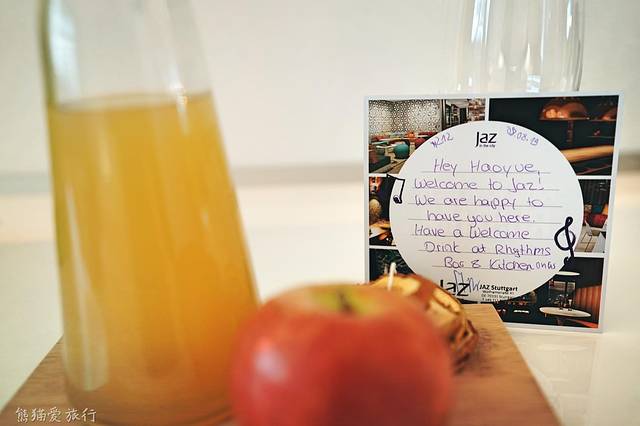 Jaz
in the city
Hey Haoyue,
Welcome to Jaz!
We are happy to
have you here.
Have a Welcome
Drink at Rhythms
Bar & Kitchen on us
Jaz
JAZ Stuttgart
熊猫爱旅行